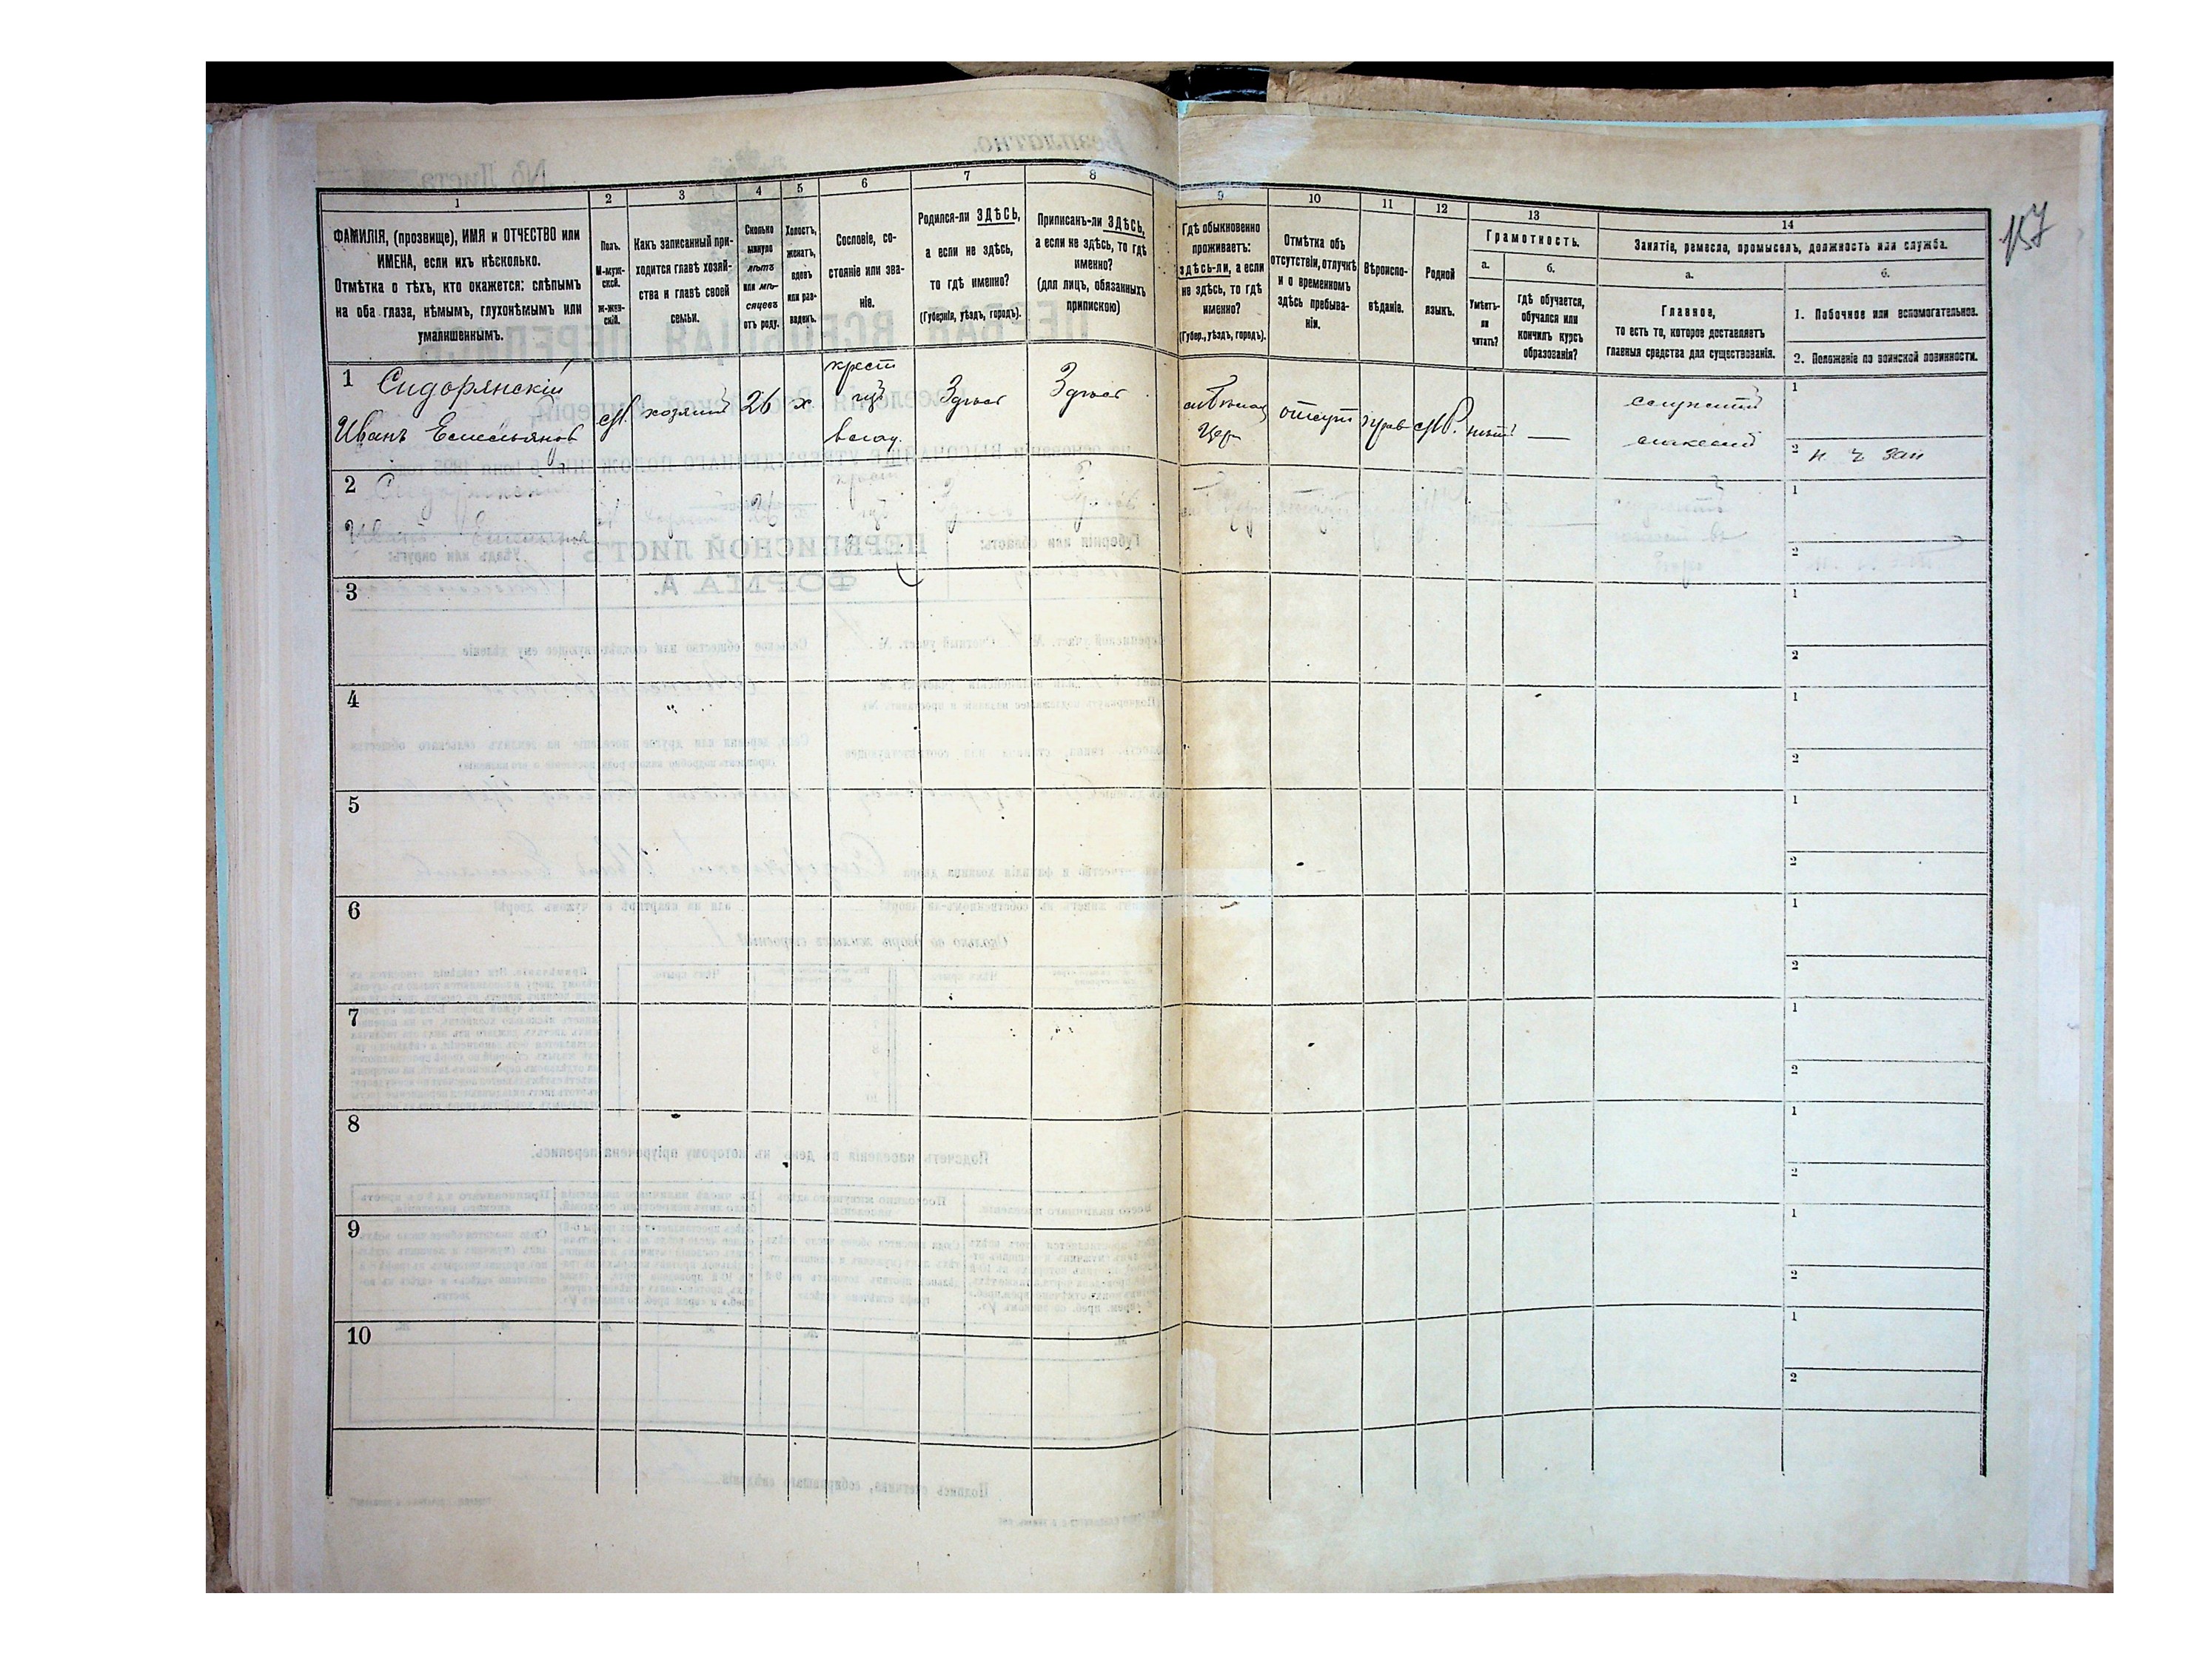 157
1
2
3
4
5
6
7
8
9
10
11
12
13
14
ФАМИЛІЯ, (прозвище), ИМЯ и ОТЧЕСТВО или
ИМЕНА, если ихъ нѣсколько.
Отмѣтка о тѣхъ, кто окажется: слѣпымъ
на оба глаза, нѣмымъ, глухонѣмымъ или
умалишеннымъ.
Полъ.
М-муж-
ской.
Ж-жен-
скій.
Какъ записанный при-
ходится главѣ хозяй-
ства и главѣ своей
семьи.
Сколько
минуло
лѣтъ
или мѣ-
сяцевъ
отъ роду.
Холостъ,
женатъ,
вдовъ
или раз-
веденъ.
Сословіе, со-
стояніе или зва-
ніе.
Родился-ли ЗДѢСЬ,
а если не здѣсь,
то гдѣ именно?
(Губернія, уѣздъ, городъ).
Приписанъ-ли ЗДѢСЬ,
а если не здѣсь, то гдѣ
именно?
(для лицъ, обязанныхъ
припискою)
Гдѣ обыкновенно
проживаетъ:
здѣсь-ли, а если
не здѣсь, то гдѣ
именно?
(Губер., уѣздъ, городъ).
Отмѣтка объ
отсутствіи, отлучкѣ
и о временномъ
здѣсь пребыва-
ніи.
Вѣроиспо-
вѣданіе.
Родной
языкъ.
Грамотность.
а.
Умѣетъ-
ли
читать?
б.
гдѣ обучается,
обучался или
кончилъ курсъ
образованія?
Занятіе, ремесло, промыселъ, должность или служба.
а.
Главное,
то есть то, которое доставляетъ
главныя средства для существованія.
б.
1. Побочное или вспомогательное.
2. Положеніе по воинской повинности.
1 Сидорянскій
Иванъ Емельянов
М.
хозяинъ
26
х
крест
изъ
владу.
Здѣсь
Здѣсь
отсут
прав
МР.
нѣтъ
—
служитъ
1
2
2
1
2
3
1
2
4
1
2
5
1
2
6
1
2
7
1
2
8
1
2
9
1
2
10
1
2